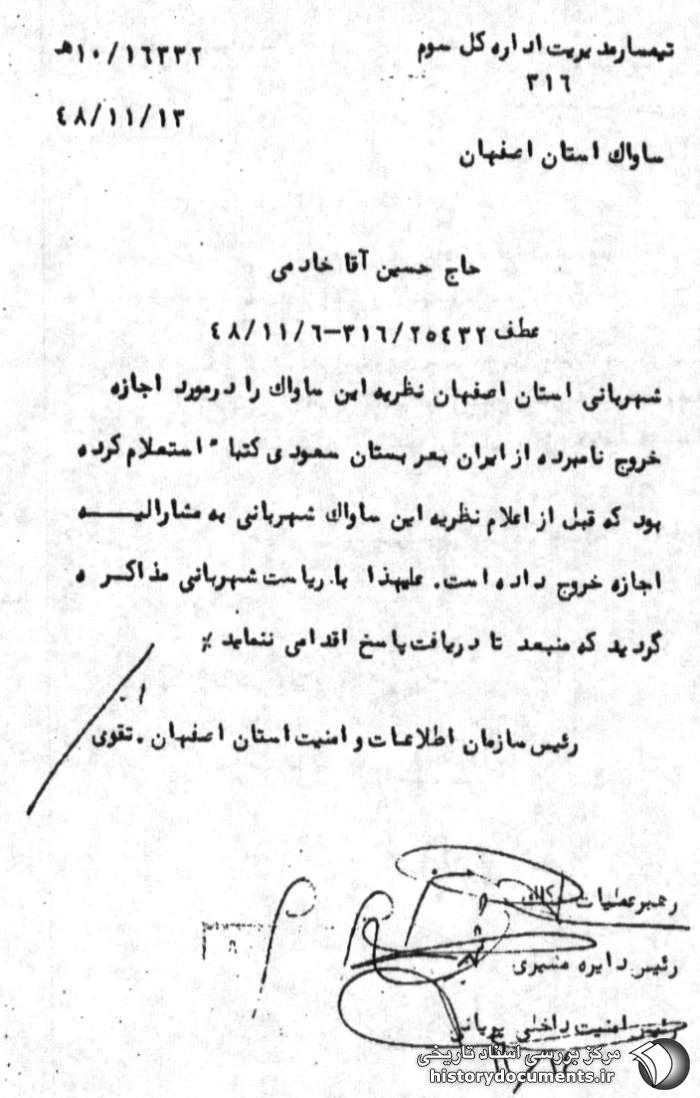 تیمسار مدیریت اداره کل سوم
۱۰/۱۶۳۳۲ هـ
۳۱۶
۴۸/۱۱/۱۳
ساواک استان اصفهان
حاج حسین آقا خادمی
عطف ۳۱۶/۲۵۴۳۲-۴۸/۱۱/۶
شهربانی استان اصفهان نظریه این ساواک را در مورد اجازه
خروج نامبرده از ایران بعربستان سعودی کتبا" استعلام کرده
بود که قبل از اعلام نظریه این ساواک شهربانی به مشارالیه
اجازه خروج داده است. علیهذا با ریاست شهربانی مذاکره
گردید که منبعد تا دریافت پاسخ اقدامی ننماید ٪
رئیس سازمان اطلاعات و امنیت استان اصفهان . تقوی
رهبر عملیات
رئیس دایره
رئیس امنیت داخلی
مرکز بررسی اسناد تاریخی
historydocuments.ir